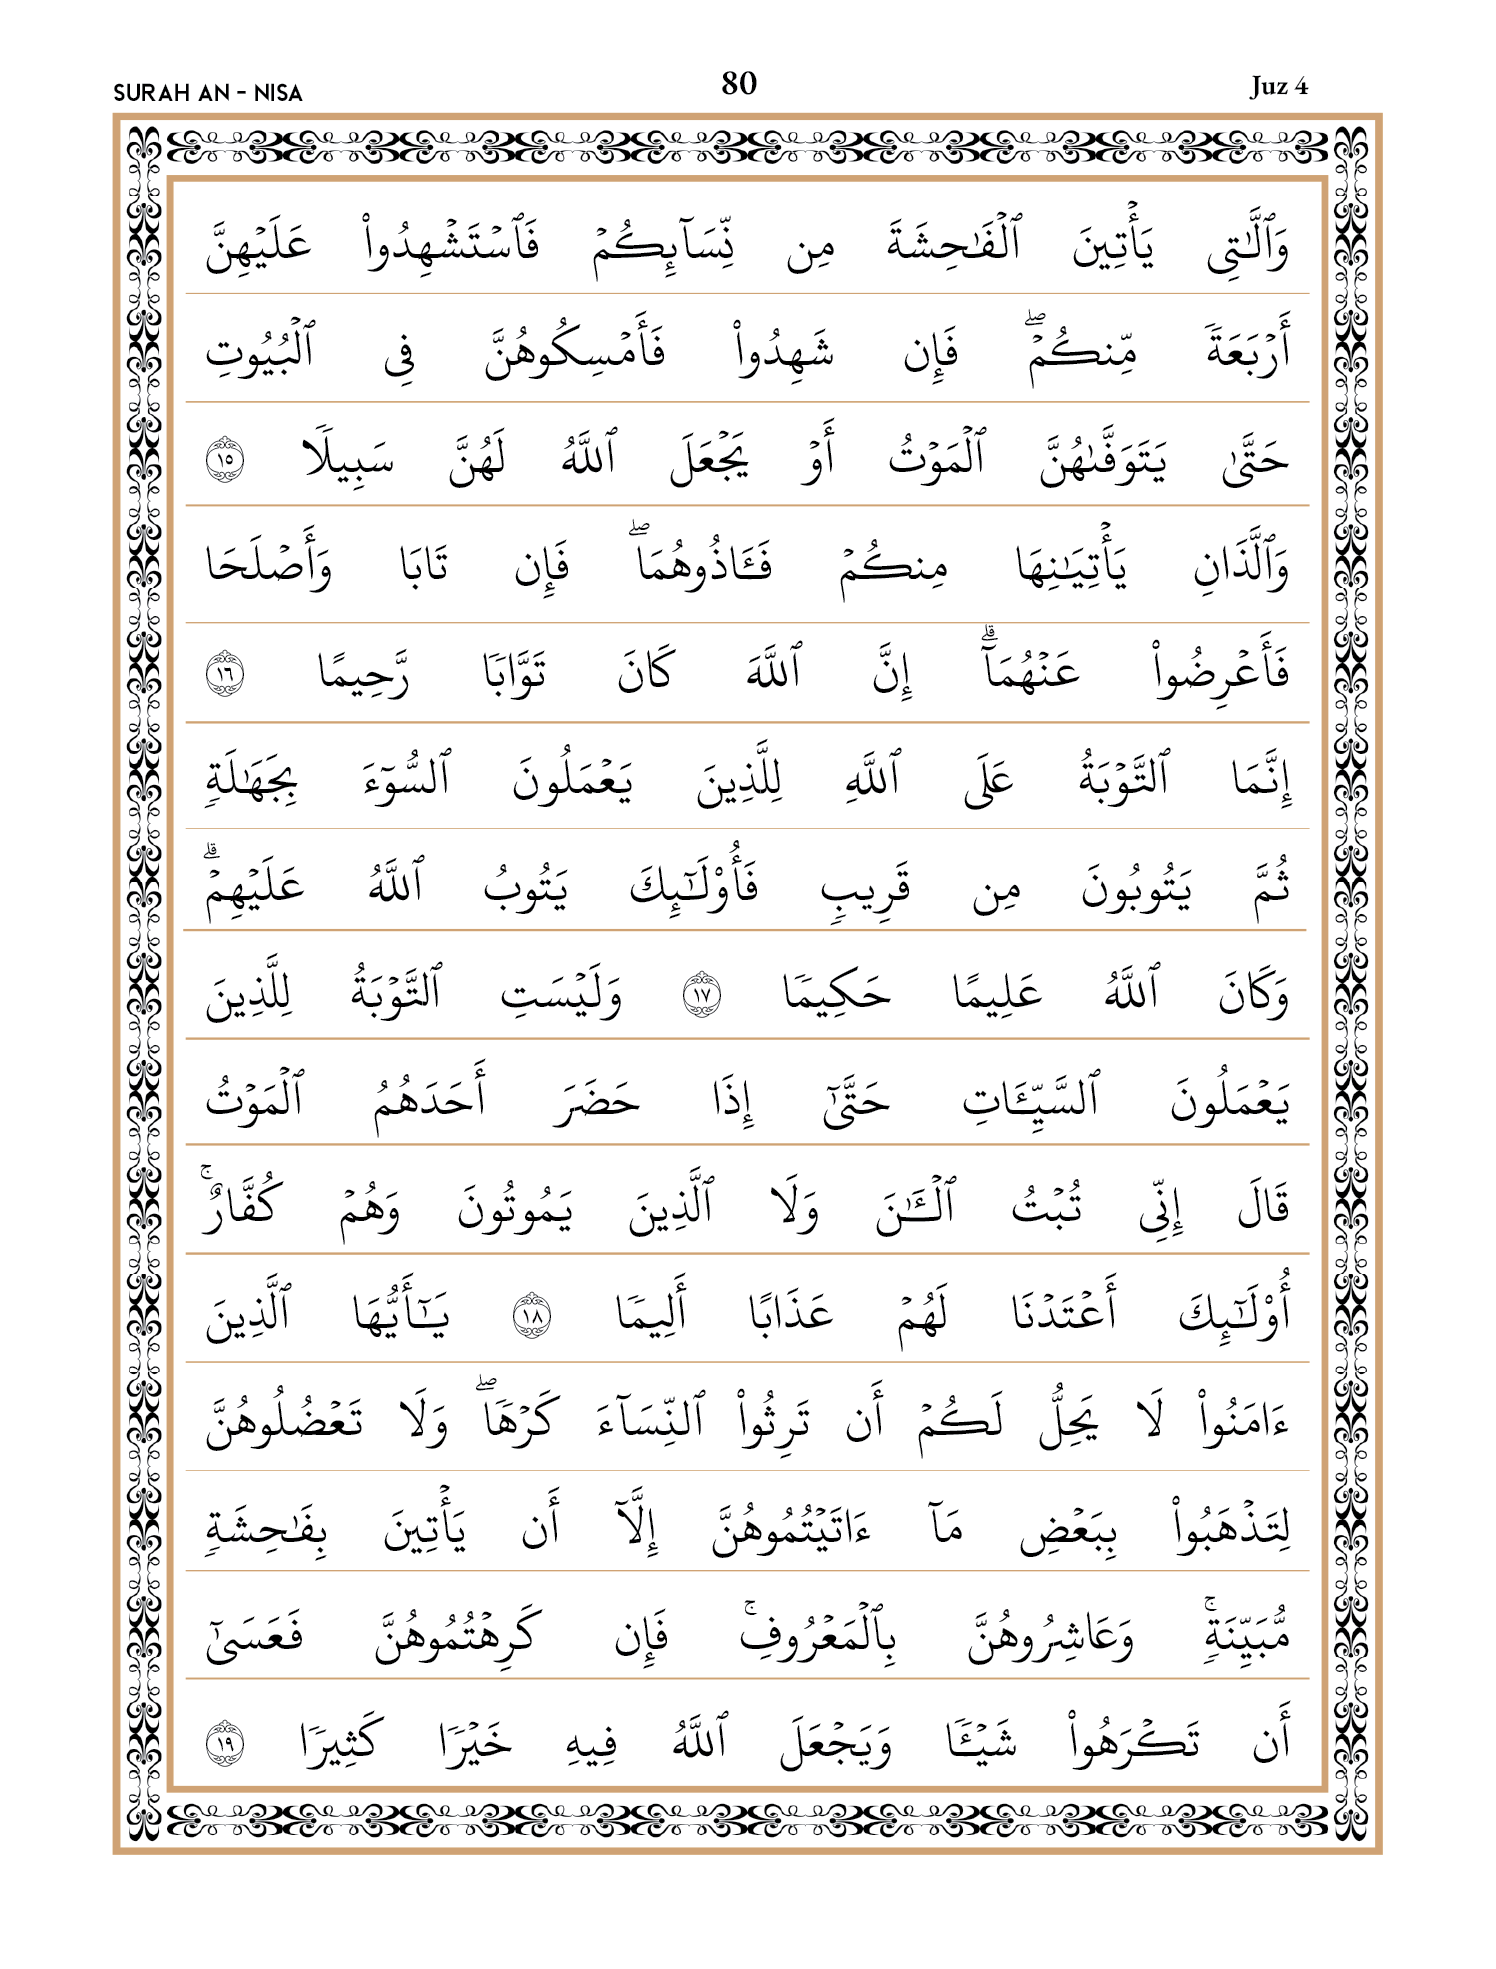 SURAH AN - NISA 80 Juz 4
وَٱلَّٰتِى يَأۡتِينَ ٱلۡفَٰحِشَةَ مِن نِّسَآئِكُمۡ فَٱسۡتَشۡهِدُواْ عَلَيۡهِنَّ
أَرۡبَعَةٗ مِّنكُمۡۖ فَإِن شَهِدُواْ فَأَمۡسِكُوهُنَّ فِى ٱلۡبُيُوتِ
حَتَّىٰ يَتَوَفَّىٰهُنَّ ٱلۡمَوۡتُ أَوۡ يَجۡعَلَ ٱللَّهُ لَهُنَّ سَبِيلٗا ١٥
وَٱلَّذَانِ يَأۡتِيَٰنِهَا مِنكُمۡ فَـَٔاذُوهُمَاۖ فَإِن تَابَا وَأَصۡلَحَا
فَأَعۡرِضُواْ عَنۡهُمَآۗ إِنَّ ٱللَّهَ كَانَ تَوَّابٗا رَّحِيمًا ١٦
إِنَّمَا ٱلتَّوۡبَةُ عَلَى ٱللَّهِ لِلَّذِينَ يَعۡمَلُونَ ٱلسُّوٓءَ بِجَهَٰلَةٖ
ثُمَّ يَتُوبُونَ مِن قَرِيبٖ فَأُوْلَٰٓئِكَ يَتُوبُ ٱللَّهُ عَلَيۡهِمۡۗ
وَكَانَ ٱللَّهُ عَلِيمًا حَكِيمٗا ١٧ وَلَيۡسَتِ ٱلتَّوۡبَةُ لِلَّذِينَ
يَعۡمَلُونَ ٱلسَّيِّـَٔاتِ حَتَّىٰٓ إِذَا حَضَرَ أَحَدَهُمُ ٱلۡمَوۡتُ
قَالَ إِنِّى تُبۡتُ ٱلۡـَٰٔنَ وَلَا ٱلَّذِينَ يَمُوتُونَ وَهُمۡ كُفَّارٌۚ
أُوْلَٰٓئِكَ أَعۡتَدۡنَا لَهُمۡ عَذَابًا أَلِيمٗا ١٨ يَٰٓأَيُّهَا ٱلَّذِينَ
ءَامَنُواْ لَا يَحِلُّ لَكُمۡ أَن تَرِثُواْ ٱلنِّسَآءَ كَرۡهٗاۖ وَلَا تَعۡضُلُوهُنَّ
لِتَذۡهَبُواْ بِبَعۡضِ مَآ ءَاتَيۡتُمُوهُنَّ إِلَّآ أَن يَأۡتِينَ بِفَٰحِشَةٖ
مُّبَيِّنَةٖۚ وَعَاشِرُوهُنَّ بِٱلۡمَعۡرُوفِۚ فَإِن كَرِهۡتُمُوهُنَّ فَعَسَىٰٓ
أَن تَكۡرَهُواْ شَيۡـٔٗا وَيَجۡعَلَ ٱللَّهُ فِيهِ خَيۡرٗا كَثِيرٗا ١٩